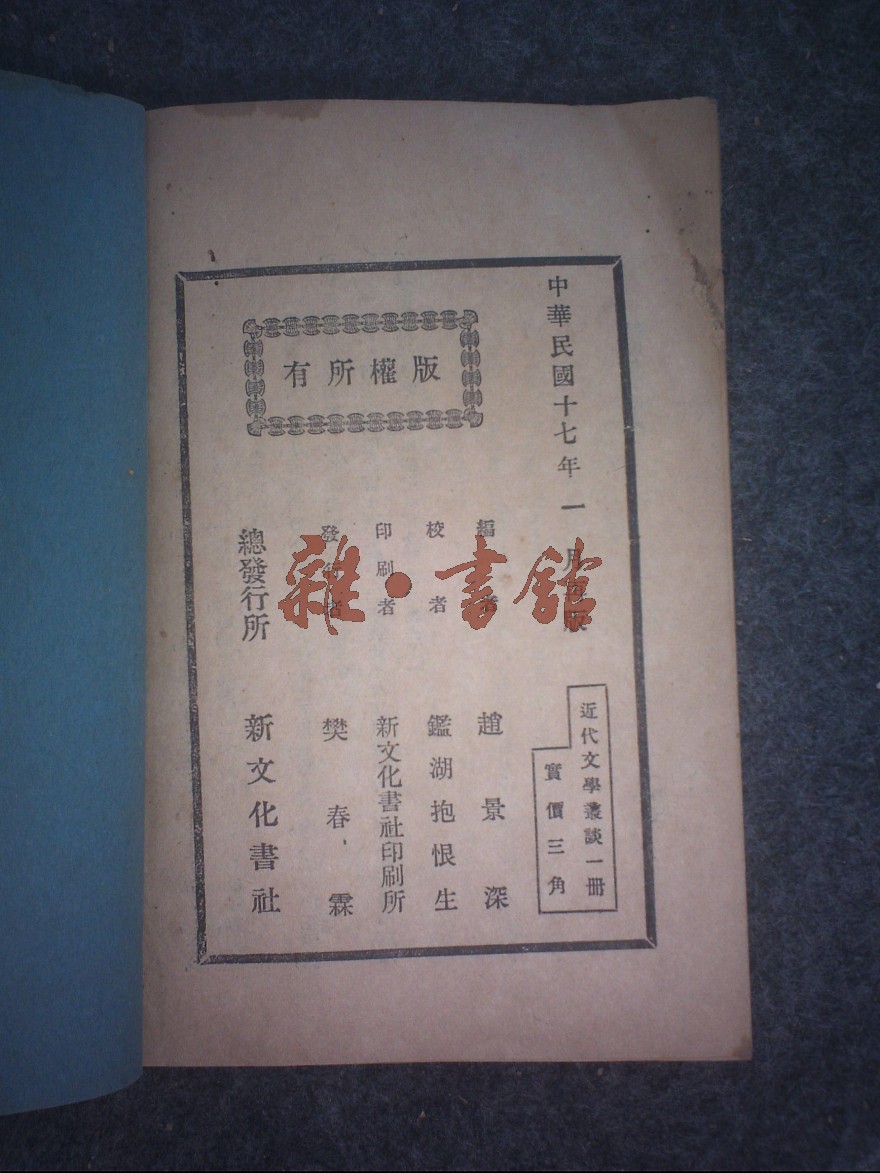 中華民國十七年一月再版
近代文學叢談一冊
實價三角
版權所有
編者 趙景深
校者 鑑湖抱恨生
印刷者 新文化書社印刷所
發行者 樊春霖
總發行所 新文化書社
雜·書館